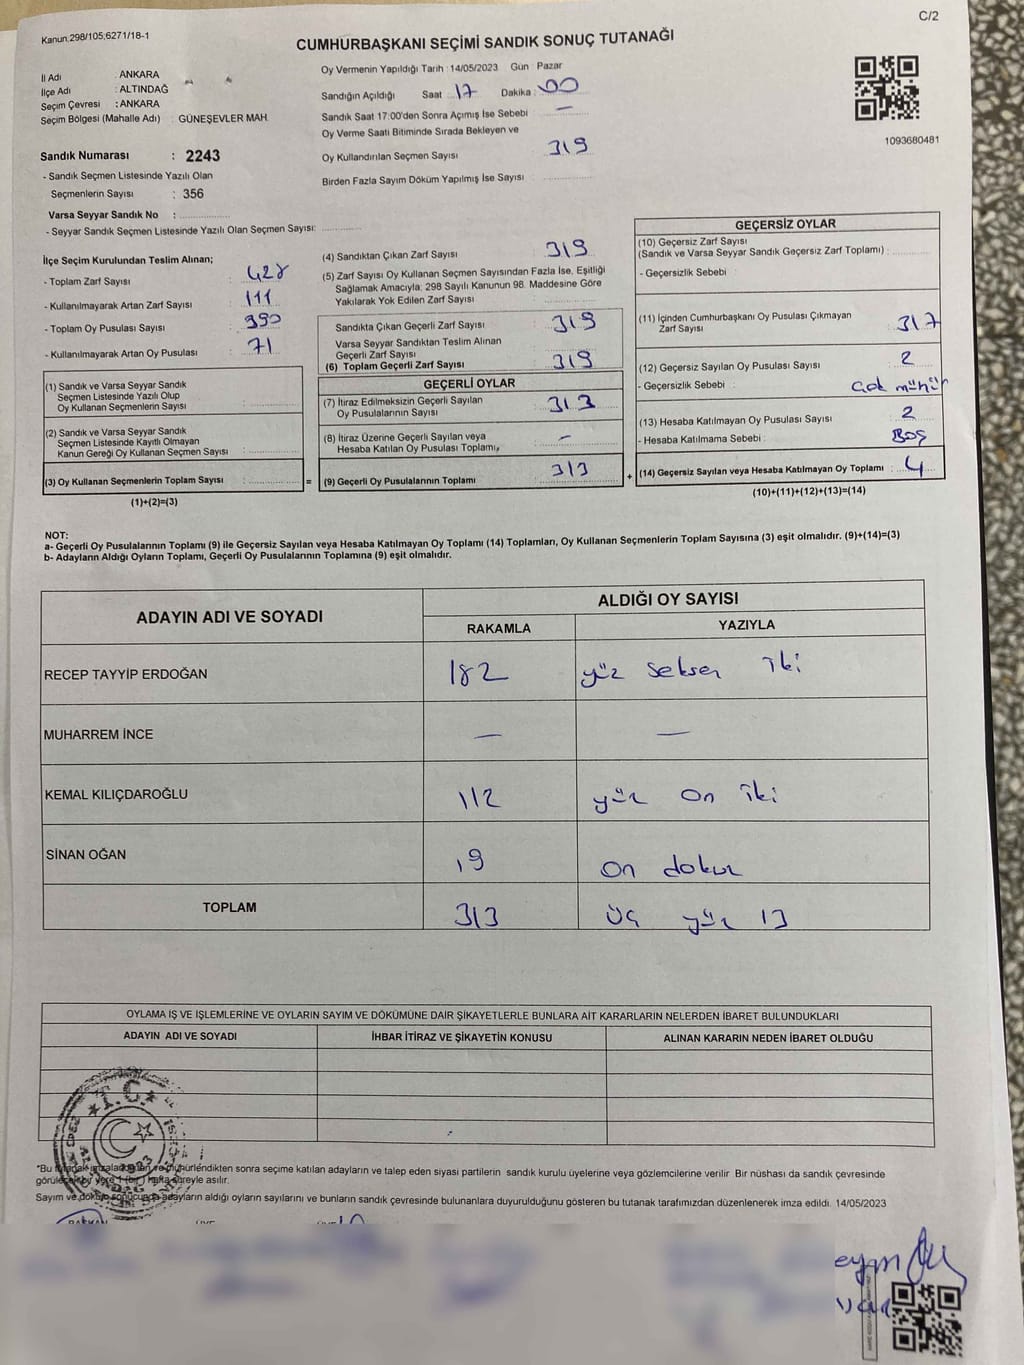 C/2
Kanun:298/105;6271/18-1
CUMHURBAŞKANI SEÇİMİ SANDIK SONUÇ TUTANAĞI
İl Adı : ANKARA
İlçe Adı : ALTINDAĞ
Seçim Çevresi : ANKARA
Seçim Bölgesi (Mahalle Adı) : GÜNEŞEVLER MAH.
Sandık Numarası : 2243
- Sandık Seçmen Listesinde Yazılı Olan
Seçmenlerin Sayısı : 356
Varsa Seyyar Sandık No :
- Seyyar Sandık Seçmen Listesinde Yazılı Olan Seçmen Sayısı:
Oy Vermenin Yapıldığı Tarih : 14/05/2023 Gün : Pazar
Sandığın Açıldığı Saat 17 Dakika : 00
Sandık Saat 17:00'den Sonra Açımış İse Sebebi —
Oy Verme Saati Bitiminde Sırada Bekleyen ve
Oy Kullandırılan Seçmen Sayısı 319
Birden Fazla Sayım Döküm Yapılmış İse Sayısı :
1093680481
İlçe Seçim Kurulundan Teslim Alınan;
- Toplam Zarf Sayısı : 428
- Kullanılmayarak Artan Zarf Sayısı : 111
- Toplam Oy Pusulası Sayısı : 390
- Kullanılmayarak Artan Oy Pusulası : 71
(1) Sandık ve Varsa Seyyar Sandık
Seçmen Listesinde Yazılı Olup
Oy Kullanan Seçmenlerin Sayısı :
(2) Sandık ve Varsa Seyyar Sandık
Seçmen Listesinde Kayıtlı Olmayan
Kanun Gereği Oy Kullanan Seçmen Sayısı :
(3) Oy Kullanan Seçmenlerin Toplam Sayısı : =
(1)+(2)=(3)
(4) Sandıktan Çıkan Zarf Sayısı : 319
(5) Zarf Sayısı Oy Kullanan Seçmen Sayısından Fazla İse, Eşitliği
Sağlamak Amacıyla; 298 Sayılı Kanunun 98. Maddesine Göre
Yakılarak Yok Edilen Zarf Sayısı :
Sandıkta Çıkan Geçerli Zarf Sayısı : 319
Varsa Seyyar Sandıktan Teslim Alınan
Geçerli Zarf Sayısı :
(6) Toplam Geçerli Zarf Sayısı : 319
GEÇERLİ OYLAR
(7) İtiraz Edilmeksizin Geçerli Sayılan
Oy Pusulalarının Sayısı : 313
(8) İtiraz Üzerine Geçerli Sayılan veya
Hesaba Katılan Oy Pusulası Toplamı, : —
(9) Geçerli Oy Pusulalarının Toplamı : 313 +
GEÇERSİZ OYLAR
(10) Geçersiz Zarf Sayısı
(Sandık ve Varsa Seyyar Sandık Geçersiz Zarf Toplamı) :
- Geçersizlik Sebebi :
(11) İçinden Cumhurbaşkanı Oy Pusulası Çıkmayan
Zarf Sayısı : 317
(12) Geçersiz Sayılan Oy Pusulası Sayısı : 2
- Geçersizlik Sebebi : Çok mühür
(13) Hesaba Katılmayan Oy Pusulası Sayısı : 2
- Hesaba Katılmama Sebebi : Boş
(14) Geçersiz Sayılan veya Hesaba Katılmayan Oy Toplamı : 4
(10)+(11)+(12)+(13)=(14)
NOT:
a- Geçerli Oy Pusulalarının Toplamı (9) ile Geçersiz Sayılan veya Hesaba Katılmayan Oy Toplamı (14) Toplamları, Oy Kullanan Seçmenlerin Toplam Sayısına (3) eşit olmalıdır. (9)+(14)=(3)
b- Adayların Aldığı Oyların Toplamı, Geçerli Oy Pusulalarının Toplamına (9) eşit olmalıdır.
ADAYIN ADI VE SOYADI ALDIĞI OY SAYISI
RAKAMLA YAZIYLA
RECEP TAYYİP ERDOĞAN 182 yüz seksen iki
MUHARREM İNCE — —
KEMAL KILIÇDAROĞLU 112 yüz on iki
SİNAN OĞAN 19 on dokuz
TOPLAM 313 üç yüz 13
OYLAMA İŞ VE İŞLEMLERİNE VE OYLARIN SAYIM VE DÖKÜMÜNE DAİR ŞİKAYETLERLE BUNLARA AİT KARARLARIN NELERDEN İBARET BULUNDUKLARI
ADAYIN ADI VE SOYADI İHBAR İTİRAZ VE ŞİKAYETİN KONUSU ALINAN KARARIN NEDEN İBARET OLDUĞU
T.C.
*Bu tutanak imzalandıktan ve mühürlendikten sonra seçime katılan adayların ve talep eden siyasi partilerin sandık kurulu üyelerine veya gözlemcilerine verilir Bir nüshası da sandık çevresinde
görülecek bir yere 1 (bir) hafta süreyle asılır.
Sayım ve döküm sonucunda adayların aldığı oyların sayılarını ve bunların sandık çevresinde bulunanlara duyurulduğunu gösteren bu tutanak tarafımızdan düzenlenerek imza edildi. 14/05/2023
BAŞKAN